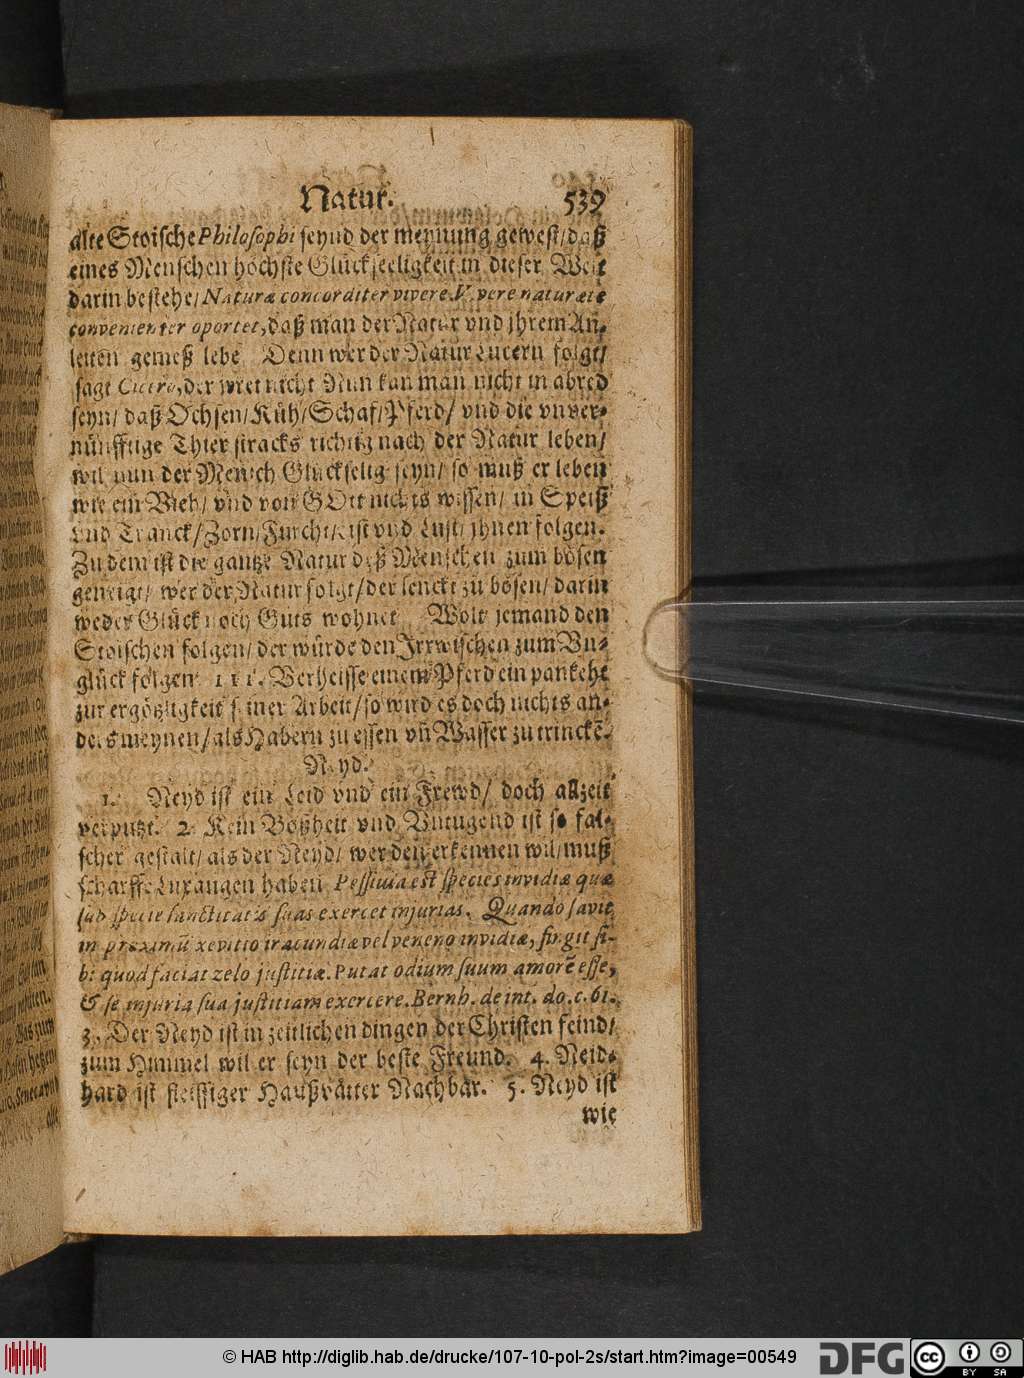 Natur. 539
alte Stoische Philosophi seynd der meynung gewest/daß
eines Menschen höchste Glückseeligkeit in dieser Welt
darin bestehe/ Naturæ concorditer vivere. V. vere naturæ
convenienter oportet, daß man der Natur vnd jhrem An-
leiten gemeß lebe Denn wer der Natur Lucern folgt/
sagt Cicero, der irret nicht Nun kan man nicht in abred
seyn/ daß Ochsen/Küh/Schaf/Pferd/ vnd die vnver-
nünfftige Thier stracks richtig nach der Natur leben/
wil nun der Mensch Glückselig seyn/ so muß er leben
wie ein Vieh/ vnd von GOtt nichts wissen/ in Speiß
vnd Tranck/Zorn/Furcht/List vnd Lust/ jhnen folgen.
Zu dem ist die gantze Natur deß Menschen zum bösen
geneigt/ wer der Natur folgt/der lenckt zu bösen/ darin
weder Glück noch Guts wohnet Wolt jemand den
Stoischen folgen/ der würde den Irrwischen zum Vn-
glück folgen 111. Verheisse einem Pferd ein panckehe
zur ergötzligkeit seiner Arbeit/so wird es doch nichts an-
ders meynen/als Habern zu essen vñ Wasser zu trinckẽ.
Neyd.
1. Neyd ist ein Leid vnd ein Frewd/ doch allzeit
verputzt. 2. Kein Boßheit vnd Vntugend ist so fal-
scher gestalt/ als der Neyd/ wer den erkennen wil/muß
scharffe Luxaugen haben Pessima est species invidiæ quæ
sub specie sanctitatis suas exercet injurias. Quando sævit
in proximũ ex vitio iracundiæ vel veneno invidiæ, fingit si-
bi quod faciat zelo justitiæ. Putat odium suum amorẽ esse,
& se injuria sua justitiam exercere. Bernh. de int. do. c. 61.
3. Der Neyd ist in zeitlichen dingen der Christen feind/
zum Himmel wil er seyn der beste Freund. 4. Neid-
hard ist fleissiger Haußvätter Nachbar. 5. Neyd ist
wie
© HAB http://diglib.hab.de/drucke/107-10-pol-2s/start.htm?image=00549
DFG
cc BY SA